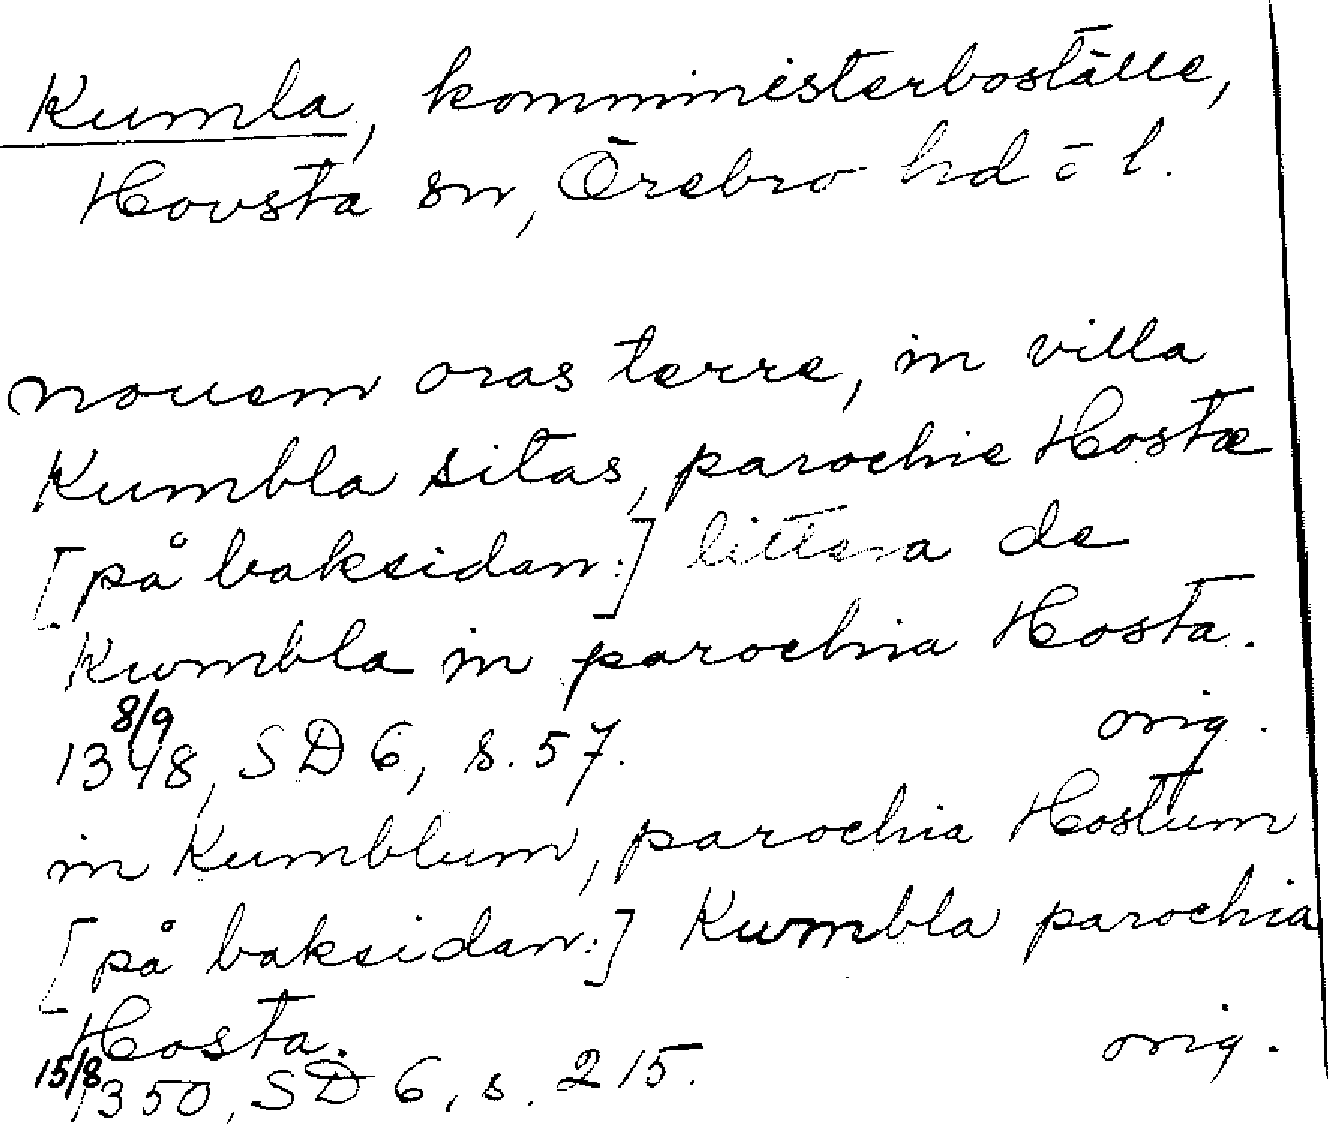 Kumla, komministerboställe,
Hovsta sn, Örebro hd o l.
nouem oras terre, in villa
Kumbla sitas, parochie Hostæ
[på baksidan:] littera de
Kwmbla in parochia Hosta.
8/9
1348, SD 6, s. 57. orig.
in Kumblum, parochia Hostum
[på baksidan:] Kwmbla parochia
Hosta.
15/8 1350, SD 6, s. 215. orig.